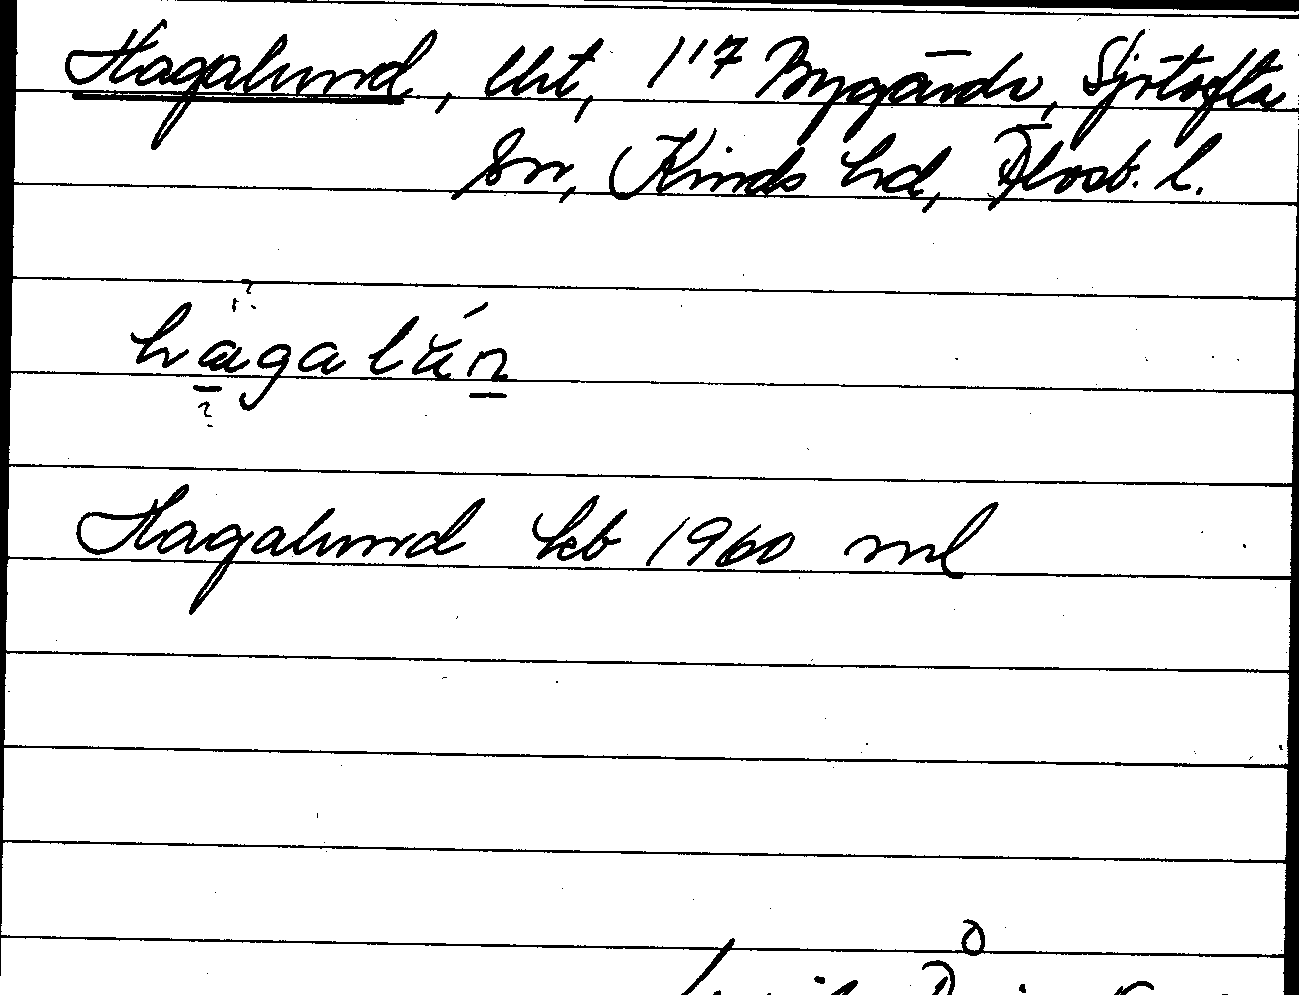 Hagalund, lht, 1¹⁷ Bygärde, Sjötofta
sn, Kinds hd, Älvsb. l.
hagalún
Hagalund heb 1960 ml